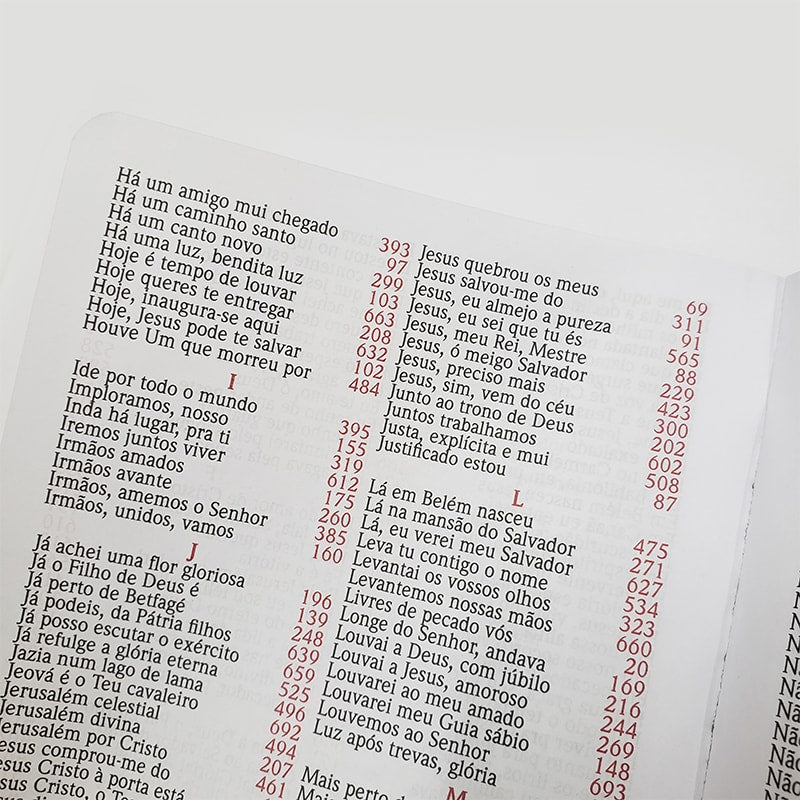 Há um amigo mui chegado 393
Há um caminho santo 97
Há um canto novo 299
Há uma luz, bendita luz 103
Hoje é tempo de louvar 663
Hoje queres te entregar 208
Hoje, inaugura-se aqui 632
Hoje, Jesus pode te salvar 102
Houve Um que morreu por 484
I
Ide por todo o mundo 395
Imploramos, nosso 155
Inda há lugar, pra ti 319
Iremos juntos viver 612
Irmãos amados 175
Irmãos avante 260
Irmãos, amemos o Senhor 385
Irmãos, unidos, vamos 160
J
Já achei uma flor gloriosa 196
Já o Filho de Deus é 139
Já perto de Betfagé 248
Já podeis, da Pátria filhos 639
Já posso escutar o exército 659
Já refulge a glória eterna 525
Jazia num lago de lama 496
Jeová é o Teu cavaleiro 692
Jerusalém celestial 494
Jerusalém divina 207
Jerusalém por Cristo 461
esus comprou-me do
sus Cristo à porta está
sus Cristo, o
Jesus quebrou os meus 69
Jesus salvou-me do 311
Jesus, eu almejo a pureza 91
Jesus, eu sei que tu és 565
Jesus, meu Rei, Mestre 88
Jesus, ó meigo Salvador 229
Jesus, preciso mais 423
Jesus, sim, vem do céu 300
Junto ao trono de Deus 202
Juntos trabalhamos 602
Justa, explícita e mui 508
Justificado estou 87
L
Lá em Belém nasceu 475
Lá na mansão do Salvador 271
Lá, eu verei meu Salvador 627
Leva tu contigo o nome 534
Levantai os vossos olhos 323
Levantemos nossas mãos 660
Livres de pecado vós 20
Longe do Senhor, andava 169
Louvai a Deus, com júbilo 216
Louvai a Jesus, amoroso 244
Louvarei ao meu amado 269
Louvarei meu Guia sábio 148
Louvemos ao Senhor 693
Luz após trevas, glória
M
Mais perto
Mais